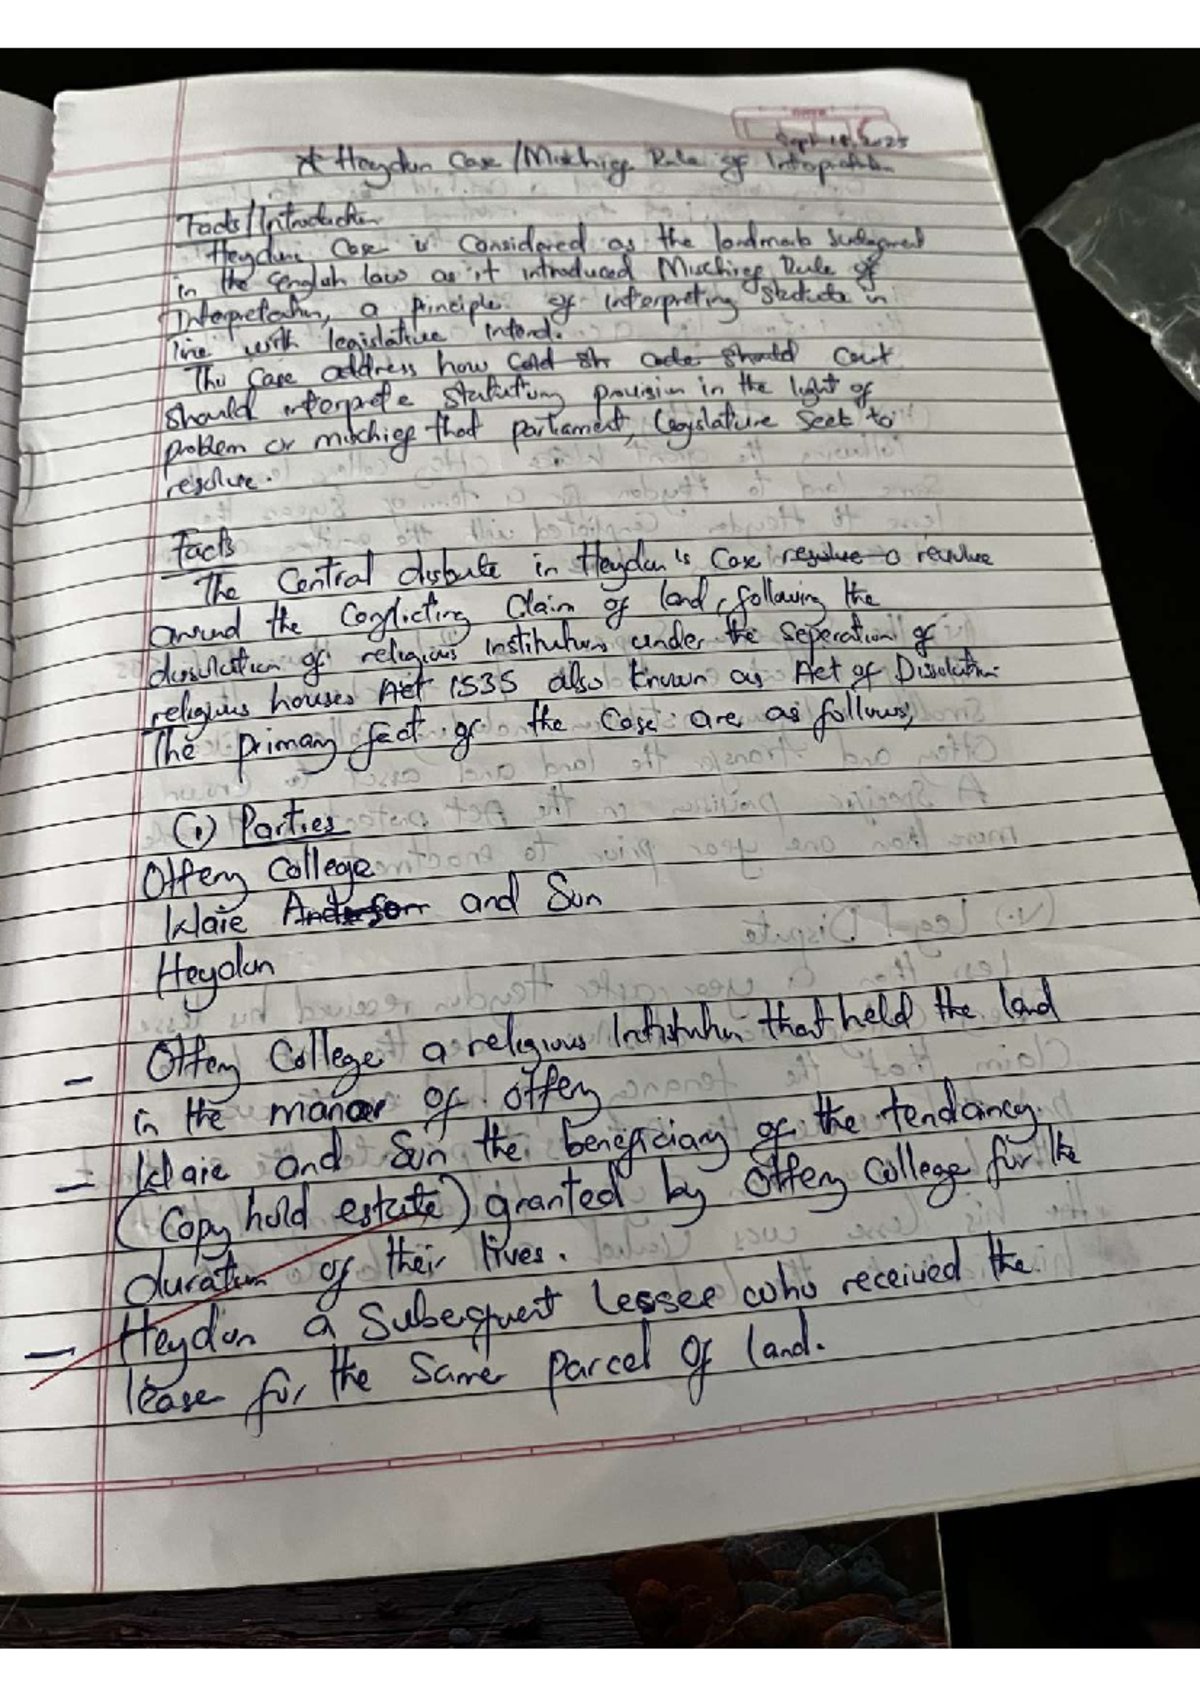 Sept 18, 2025
* Heydun Case / Mischief Rule of Interpretation
Facts/Introduction
Heyduns Case is Considered as the landmark Judgement
in the English law as it introduced Mischief Rule of
Interpretation, a principle of interpreting statute in
line with legislative intend.
This Case address how Court
should interprete statutory provision in the light of
problem or mischief that parliament, legislature seek to
resolve.
Facts
The Central disbute in Heydun's Case resolve o revolve
around the Conflicting Claim of land, following the
dissolution of religious institution under the seperation of
religious houses Act 1535 also known as Act of Dissolution
The primary fact of the Case are as follows;
(i) Parties
Ottery College
Wlaie Anderson and Son
Heydun
- Ottery College a religious Intitution that held the land
in the manoer of Ottery
- Wlaie and Son the beneficiary of the tendancy
(Copy hold estate) granted by Ottery College for the
duration of their lives.
- Heydon a Subequent Lessee who received the
lease for the same parcel of land.